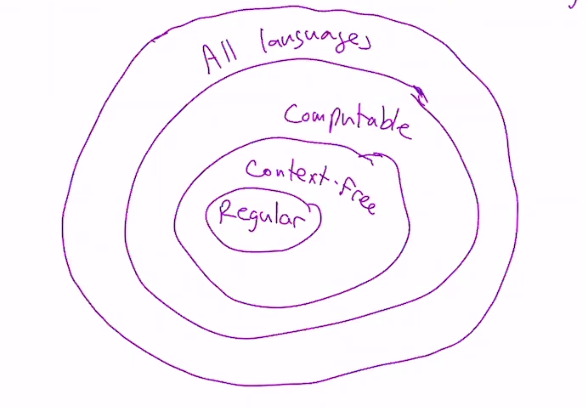 All languages
Computable
Context-free
Regular